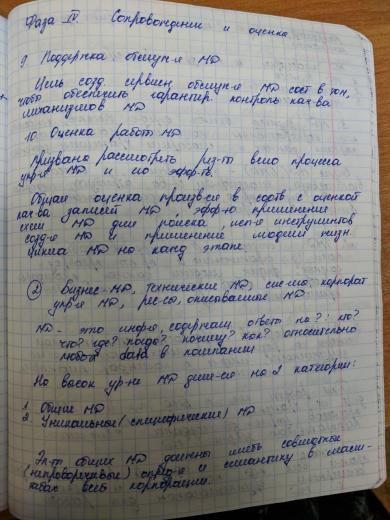 Фаза IV Сопровождения и оценка
9. Поддержка обслуж-я MD
Цель созд. сервиса обслуж-я MD сост в том,
чтобы обеспечить гарантир. контроль кач-ва
механизмов MD
10. Оценка работ MD
Призвана рассмотреть рез-т всего процесса
упр-я MD и его эфф-ть.
Общая оценка произв-ся в соотв с оценкой
кач-ва записей MD, эфф-ю применения
схем MD для поиска, исп-я инструментов
созд-я MD и применение модели жизн.
цикла MD на кажд этапе.
2 Бизнес-MD, технические MD, сис-мы, корпорат
упр-я MD, рес-сы, описываемые MD
MD - это инф-я, содержащ ответы на? кто?
что? где? когда? почему? как? относительно
любой data в компании
На высок ур-не MD деле-ся на 2 категории:
1. Общие MD
2. Уникальные (специфические) MD
Эл-т общих MD должны иметь совместн
(непротиворечивые) опред-я и семантику в масш-
табах всей корпорации.